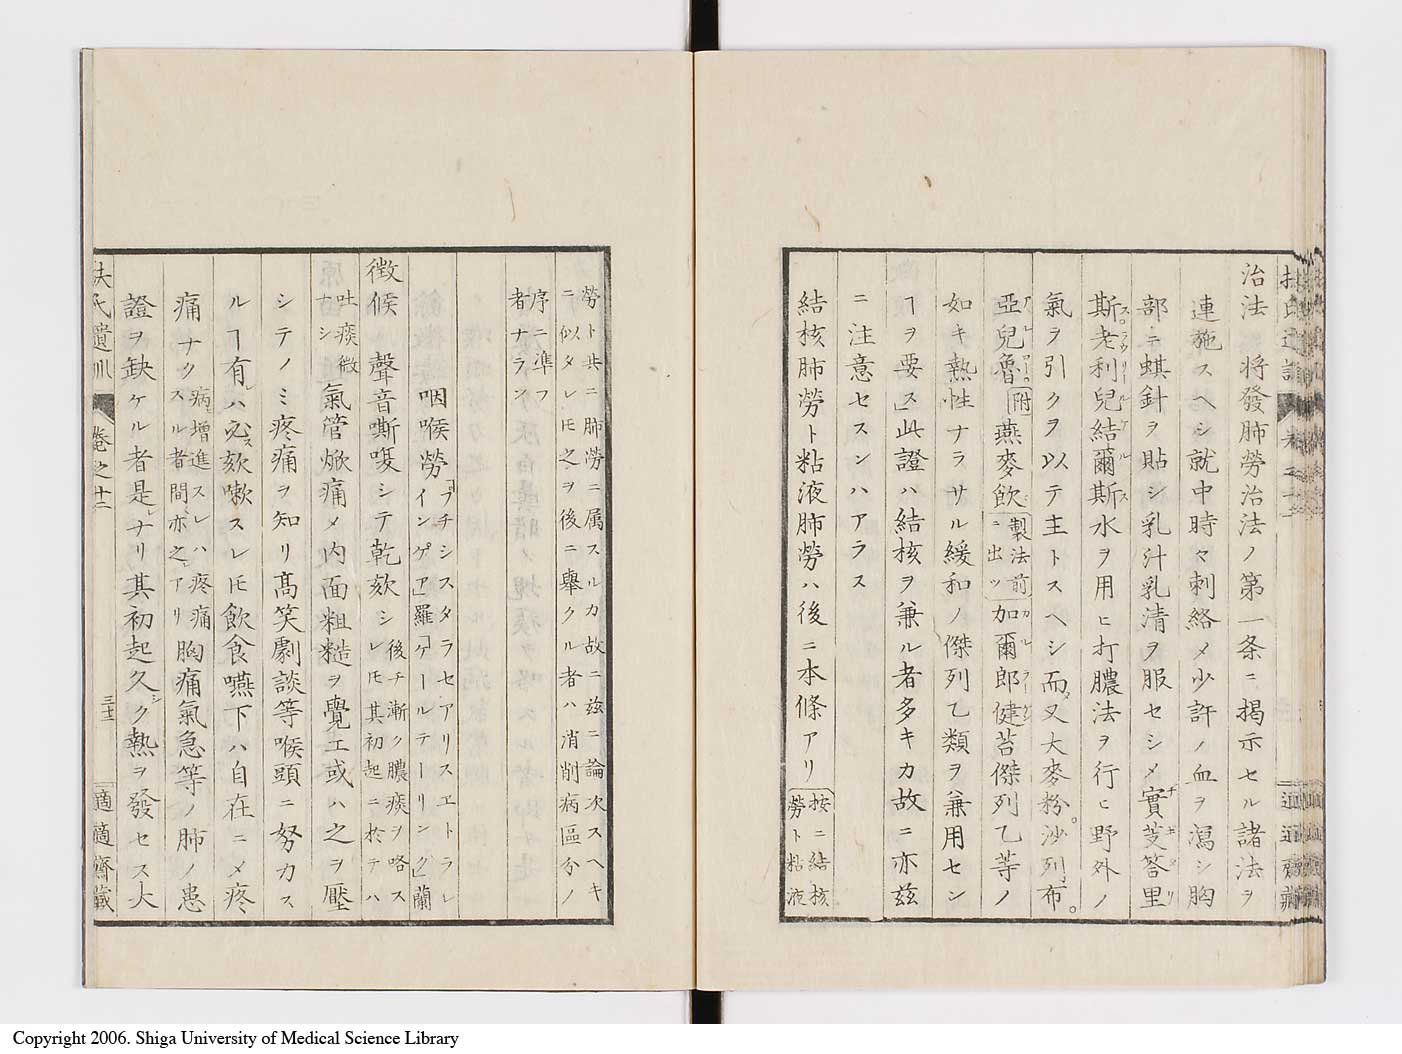 治法　将發肺勞治法ノ第一条ニ掲示セル諸法ヲ
連施スヘシ就中時々刺絡メ少許ノ血ヲ瀉シ胸
部ニ蜞針ヲ貼シ乳汁乳清ヲ服セシメ實芰答里
斯老利兒結爾斯水ヲ用ヒ打膿法ヲ行ヒ野外ノ
氣ヲ引クヲ以テ主トスヘシ而メ又大麥粉沙列布。
亞兒魯附燕麥飲製法前ニ出ツ加爾郎健苔傑列乙等ノ
如キ熱性ナラサル緩和ノ傑列乙類ヲ兼用セン
ヿヲ要ス」此證ハ結核ヲ兼ル者多キカ故ニ亦茲
ニ注意セスンハアラス
結核肺勞ト粘液肺勞ハ後ニ本條アリ按ニ結核勞ト粘液
勞ト共ニ肺勞ニ属スルカ故ニ茲ニ論次スヘキ
ニ似タレ𪜈之ヲ後ニ舉クル者ハ消削病區分ノ
序ニ準フ
者ナラン
咽喉勞「プチシスタラセアリスエトラレインゲア」羅「ケールテーリング」蘭
徴候　聲音嘶嗄シテ乾欬シ後チ漸ク膿痰ヲ咯スレ𪜈其初起ニ於テハ
吐痰微ナシ氣管焮痛メ内面粗糙ヲ覺エ或ハ之ヲ壓
シテノミ疼痛ヲ知リ髙笑劇談等喉頭ニ努力ス
ルヿ有レハ必ス欬嗽スレ𪜈飲食嚥下ハ自在ニメ疼
痛ナク病増進スレハ疼痛スル者間亦之アリ胸痛氣急等ノ肺ノ患
證ヲ缺ケル者是レナリ其初起久シク熱ヲ發セス大
扶氏遺訓　巻之十二　三十三　適適齋藏